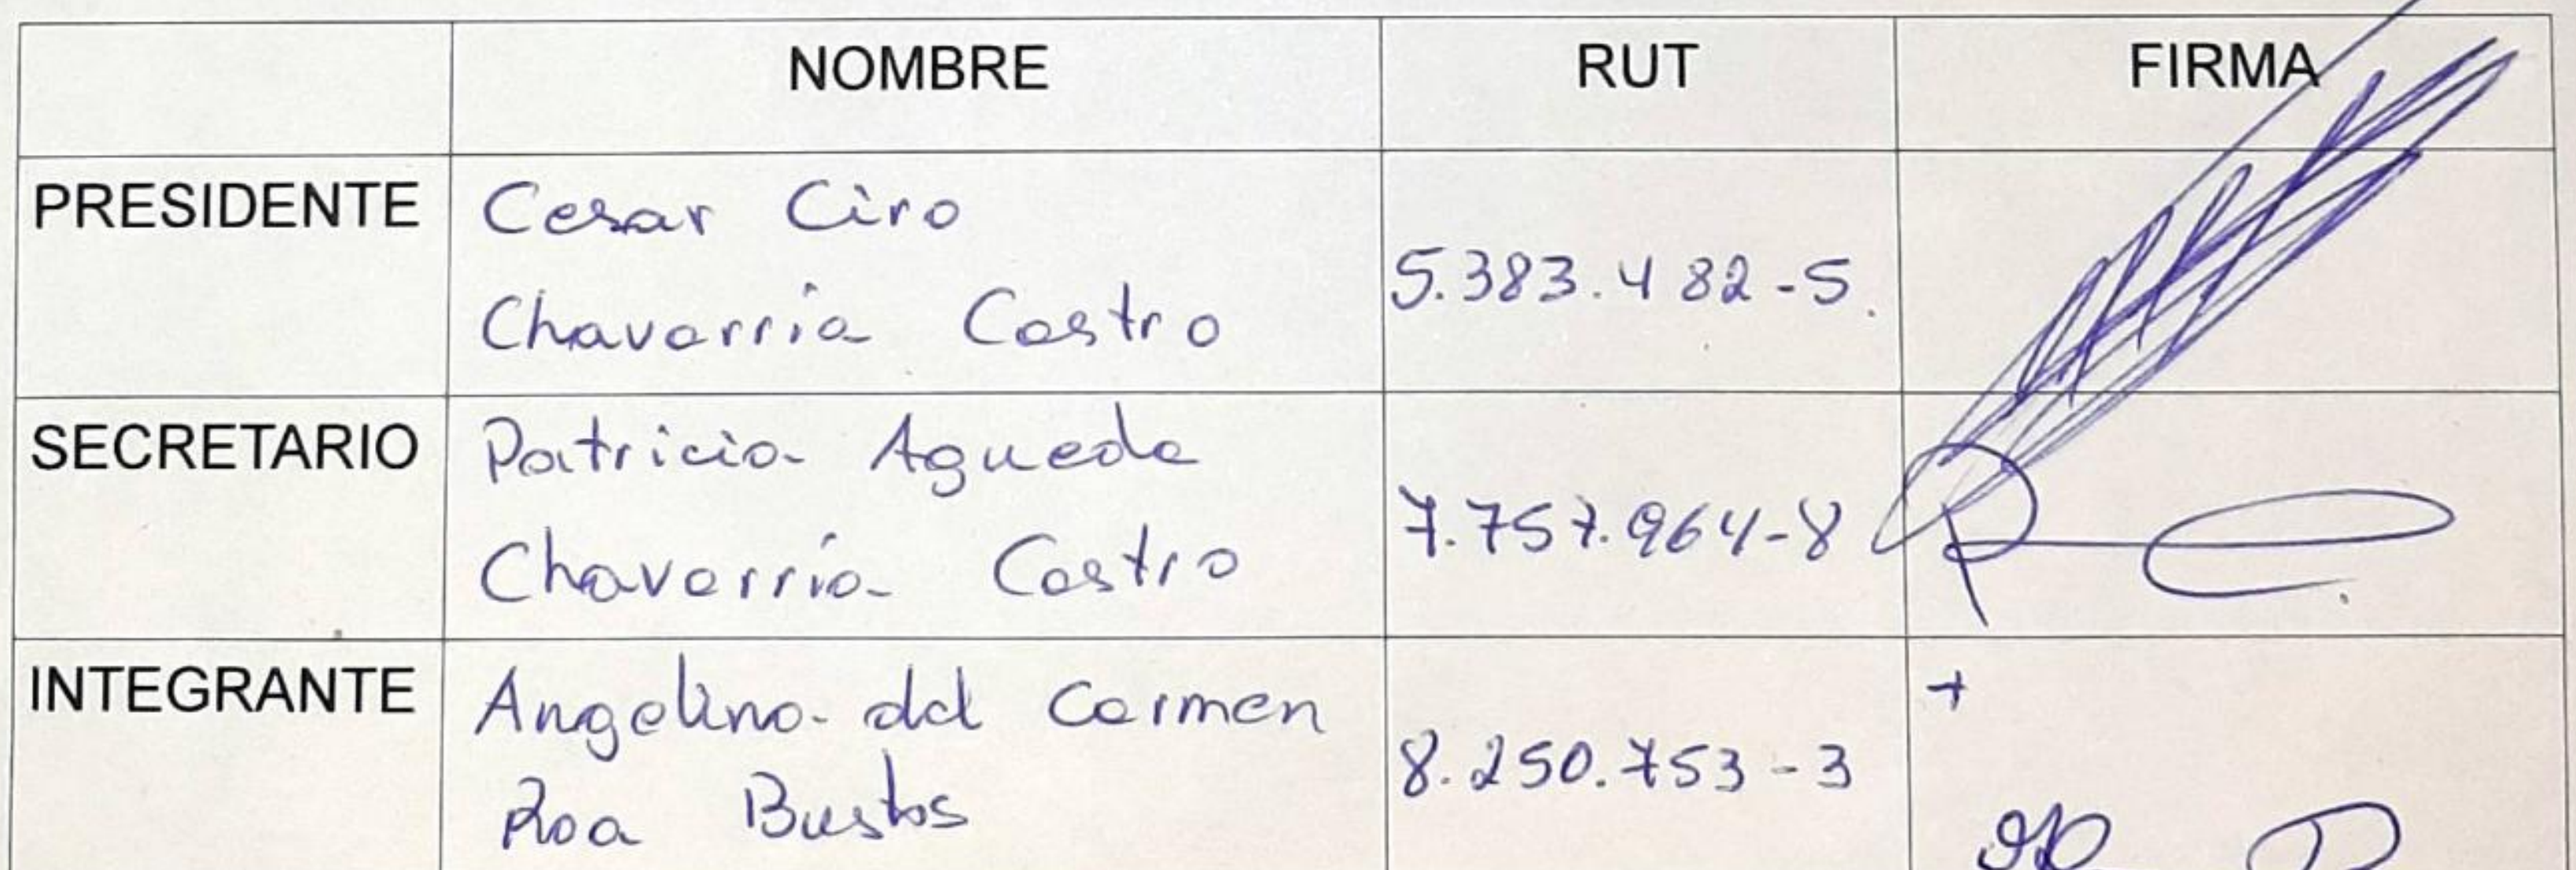 NOMBRE RUT FIRMA
PRESIDENTE Cesar Ciro
Chavarría Castro 5.383.482-5.
SECRETARIO Patricia Agueda
Chavarría Castro 7.757.964-8
INTEGRANTE Angelina del Carmen
Roa Bustos 8.250.753-3